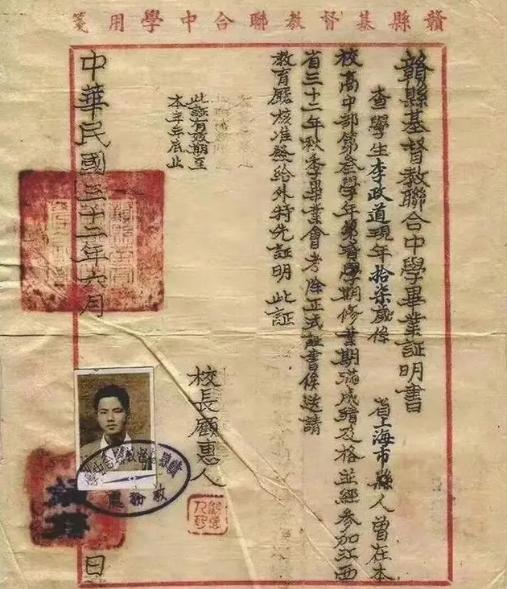 贛縣基督教聯合中學用箋
贛縣基督教聯合中學畢業証明書
查學生李政道現年拾柒歲係 省上海市縣人曾在本
校高中部第叁學年第貳學期修業期滿成績及格並經參加江西
省三十二年秋季畢業會考除正式証書俟送請
教育廳核准發給外特先証明 此証
此証有效期至
本年年底止
校長顧惠人
中華民國三十二年六月 日